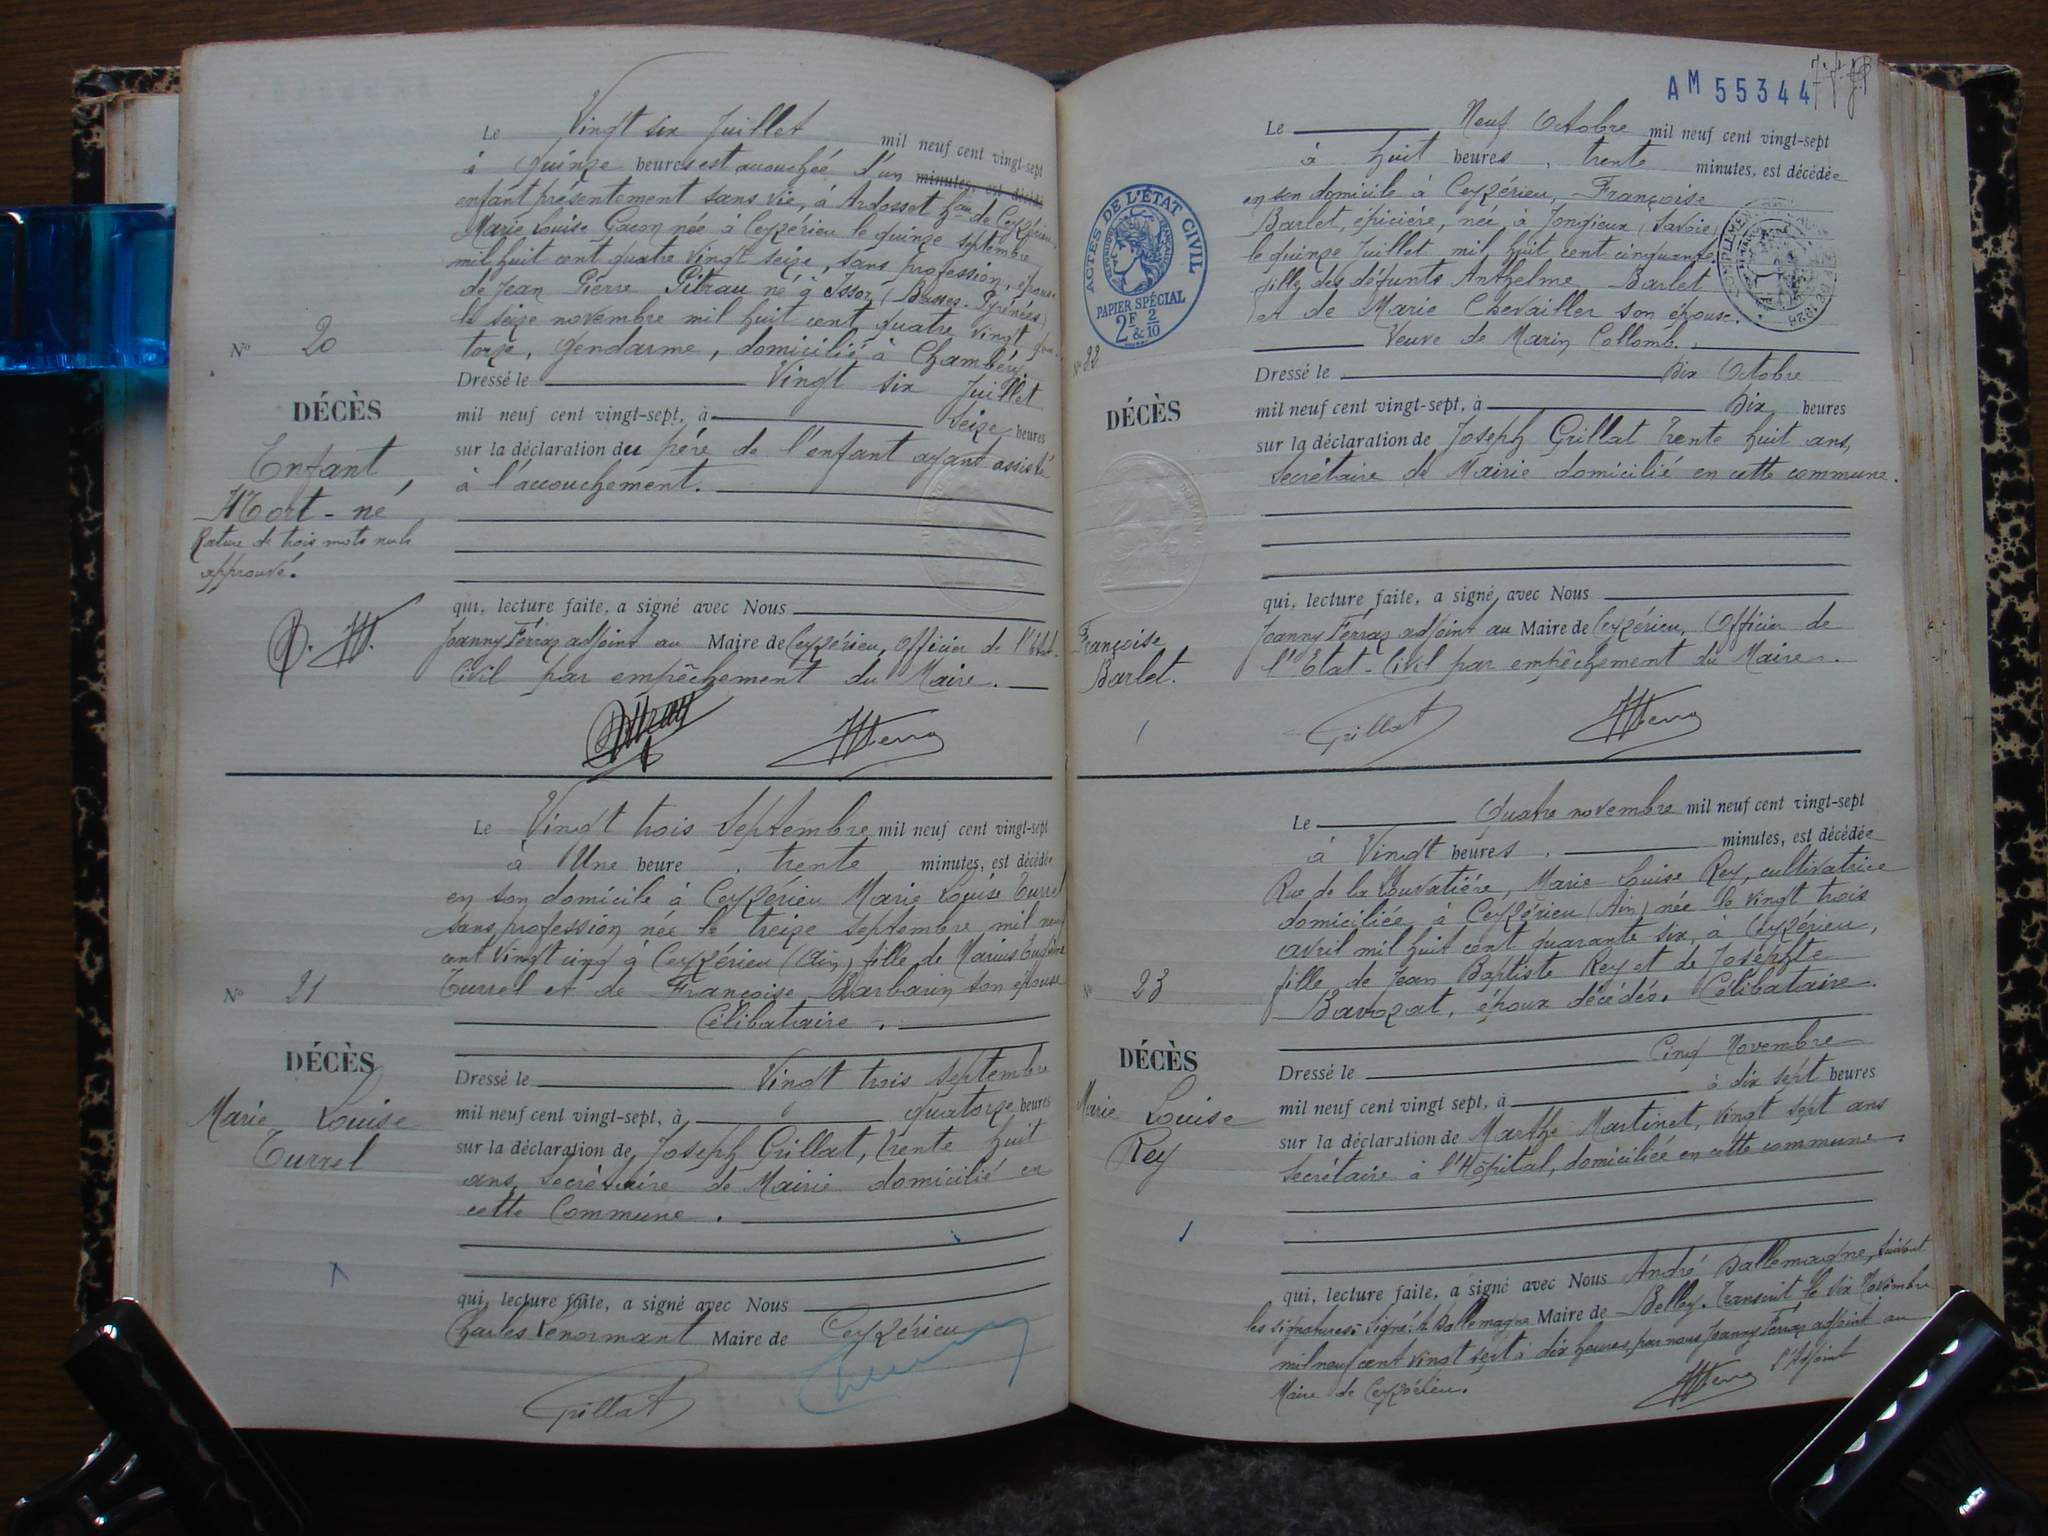 Le Vingt six Juillet mil neuf cent vingt-sept
à quinze heures est accouchée d'un minutes, est décédé
enfant présentement sans vie, à Ardosset hau de Ceyzérieu
Marie Louise Gacon née à Ceyzérieu le quinze septembre
mil huit cent quatre vingt seize, sans profession, épouse
de Jean Pierre Pitrau né à Issor (Basses-Pyrénées)
le seize novembre mil huit cent quatre vingt qua-
torze, gendarme, domicilié à Chambéry.
N° 20
Dressé le Vingt six Juillet
DÉCÈS
mil neuf cent vingt-sept, à Seize heures
Enfant
Mort-né
sur la déclaration du père de l'enfant ayant assisté
à l'accouchement.
Rature de trois mots nuls
approuvé.
qui, lecture faite, a signé avec Nous
Joanny Férraz adjoint au Maire de Ceyzérieu, Officier de l'Etat-
Civil par empêchement du Maire.
Le Vingt trois Septembre mil neuf cent vingt-sept
à Une heure trente minutes, est décédée
en son domicile à Ceyzérieu Marie Louise Turrel
sans profession née le treize septembre mil neuf
cent vingt cinq à Ceyzérieu (Ain) fille de Marius
Turrel et de Françoise Barbarin son épouse
Célibataire.
N° 21
DÉCÈS
Marie Louise
Turrel
Dressé le Vingt trois septembre
mil neuf cent vingt-sept, à quatorze heures
sur la déclaration de Joseph Grillat, trente huit
ans, secrétaire de Mairie domicilié en
cette Commune.
qui, lecture faite, a signé avec Nous
Charles Lenormant Maire de Ceyzérieu
Grillat
AM 55344
Le Neuf Octobre mil neuf cent vingt-sept
à huit heures, trente minutes, est décédée
en son domicile à Ceyzérieu, Françoise
Barlet, épicière, née à Jongieux (Savoie)
le quinze Juillet mil huit cent cinquante,
fille des défunts Anthelme Barlet
et de Marie Chevailler son épouse.
Veuve de Marin Collomb.
ACTES DE L'ÉTAT CIVIL
PAPIER SPÉCIAL
2F 2
& 10
N° 22
DÉCÈS
Françoise
Barlet.
Dressé le Dix Octobre
mil neuf cent vingt-sept, à Dix heures
sur la déclaration de Joseph Grillat trente huit ans,
Secrétaire de Mairie domicilié en cette commune.
qui, lecture faite, a signé avec Nous
Joanny Férraz adjoint au Maire de Ceyzérieu, Officier de
l'Etat-Civil par empêchement du Maire.
Grillat
Le Quatre novembre mil neuf cent vingt-sept
à Vingt heures, minutes, est décédée
Rue de la Louvatière, Marie Louise Rey, cultivatrice
domiciliée à Ceyzérieu (Ain) née le vingt trois
avril mil huit cent quarante six, à Ceyzérieu,
fille de Jean Baptiste Rey et de Josephte
Bavozat, époux décédés. Célibataire.
N° 23
DÉCÈS
Marie Louise
Rey
Dressé le Cinq Novembre
mil neuf cent vingt sept, à à dix sept heures
sur la déclaration de Marthe Martinet, vingt sept ans
Secrétaire à l'Hôpital, domiciliée en cette commune.
qui, lecture faite, a signé avec Nous André Dallemagne, suivent
les signatures. Signé: A Dallemagne Maire de Belley. Transcrit le six Novembre
mil neuf cent vingt sept à dix heures, par nous Joanny Férraz adjoint au
Maire de Ceyzérieu. l'Adjoint